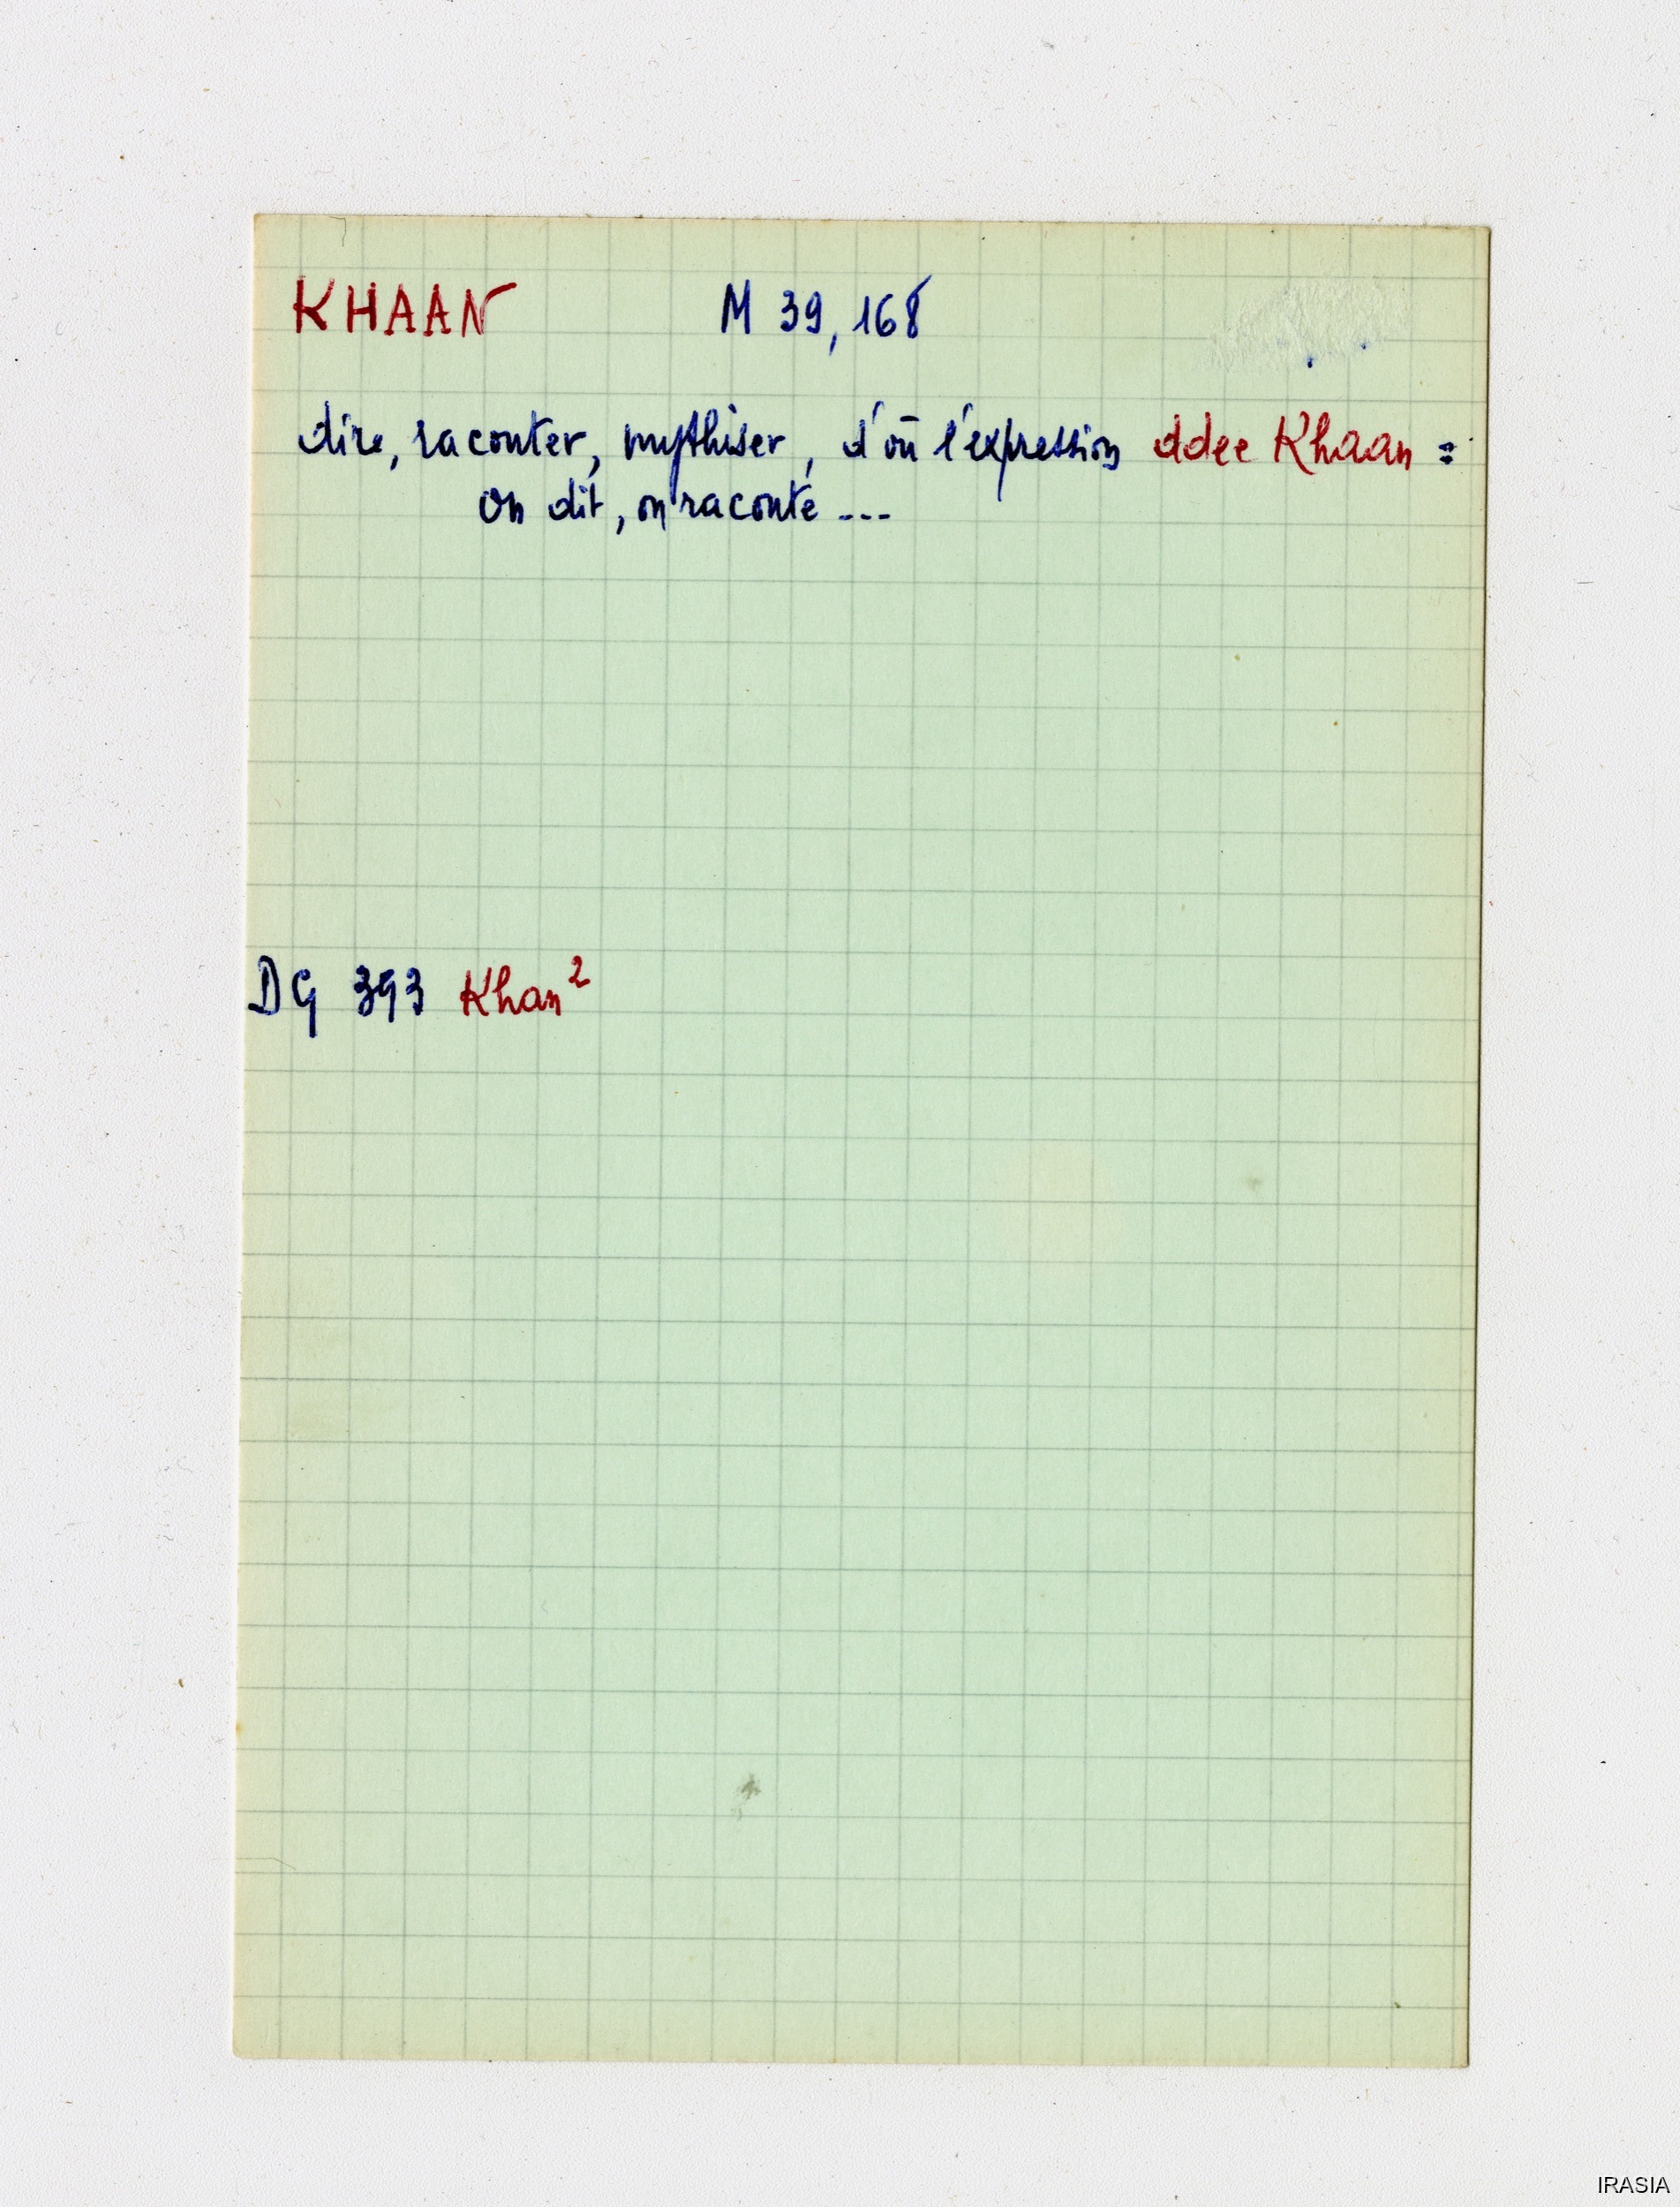 KHAAN M 39, 168
dire, raconter, mythiser, d'où l'expression ddee Khaan =
on dit, on raconte ---
DG 393 Khan²
IRASIA